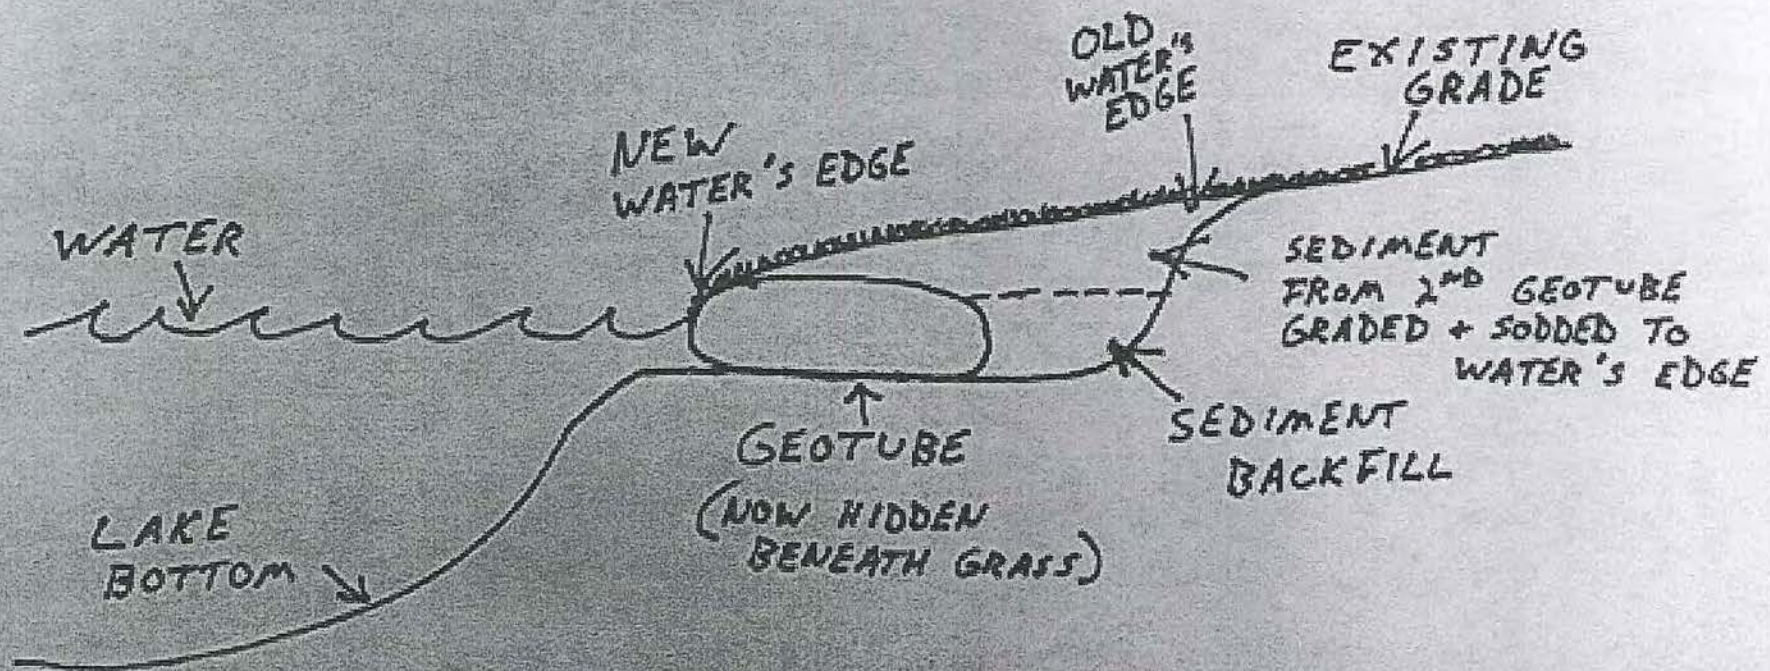 OLD
WATER'S
EDGE
EXISTING
GRADE
NEW
WATER'S EDGE
WATER
SEDIMENT
FROM 2ND GEOTUBE
GRADED + SODDED TO
WATER'S EDGE
SEDIMENT
BACKFILL
GEOTUBE
(NOW HIDDEN
BENEATH GRASS)
LAKE
BOTTOM